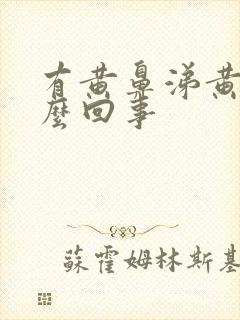 有黄鼻涕黄
麼回事
蘇霍姆林斯基